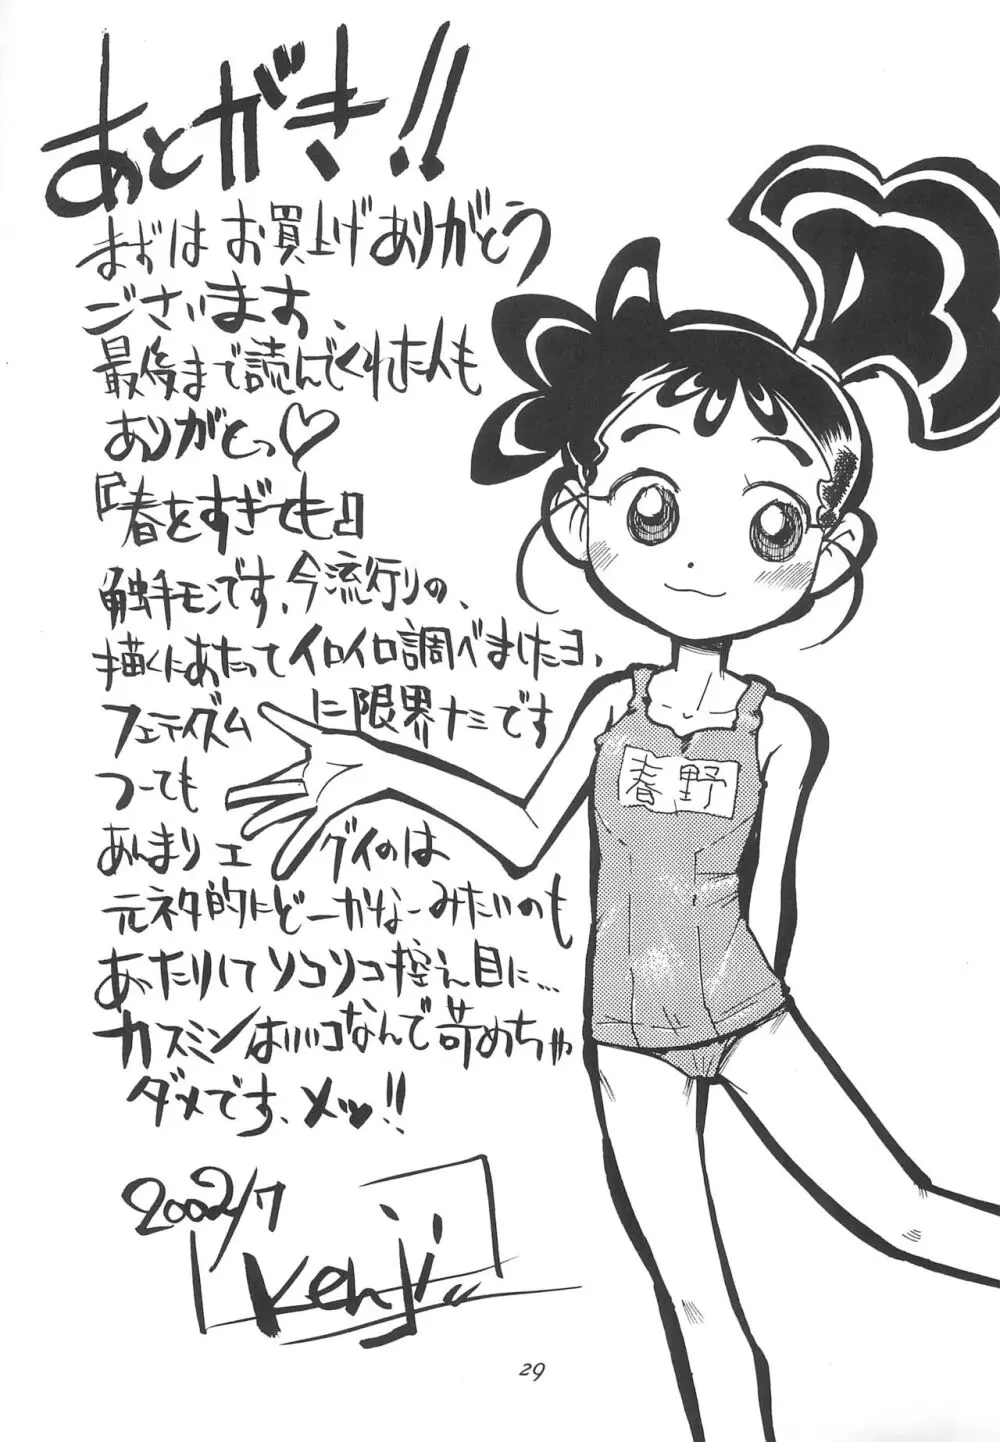 あとがき!!
まずはお買上げありがとう
ございます、
最後まで読んでくれた人も
ありがとっ♡
『春をすぎても』
触手モンです、今流行りの、
描くにあたってイロイロ調べましたヨ、
フェティズム に限界ナシです
つーても
あんまりエ グイのは
元ネタ的にどーかなーみたいのも
あったりしてソコソコ控え目に…
カスミンはイイコなんで苛めちゃ
ダメです、メッ!!
2002/7
Kenji
春野
29